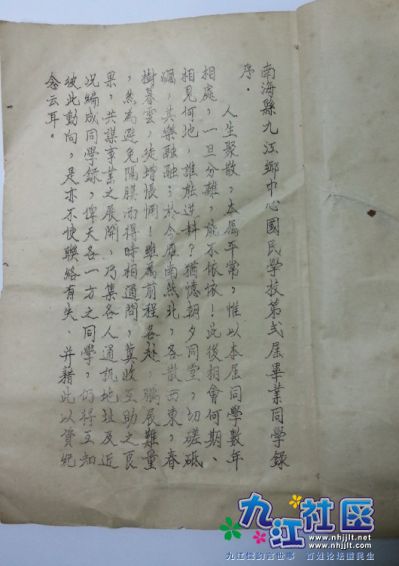 南海縣九江鄉中心國民學校第弍屆畢業同學錄
序.
人生聚散,本屬平常,惟以本屆同學數年
相處,一旦分離,能不依依!此後相會何期、
相見何地,誰能逆料?猶憶朝夕同堂,切磋砥
礪,其樂融融;於今雁南燕北,各散西東,春
樹暮雲,徒增悵惘!雖為前程各赴,鵬展難量
,然為避免隔膜而得時相通問,冀收互助之良
果,共謀事業之展開,乃集各人通訊地址及近
況編成同學錄,俾天各一方之同學,仍得互知
彼此動向,是亦不使聯絡有失、并藉此以資紀
念云耳。
九江社区
www.nhjjlt.com
www.nhjjlt.net